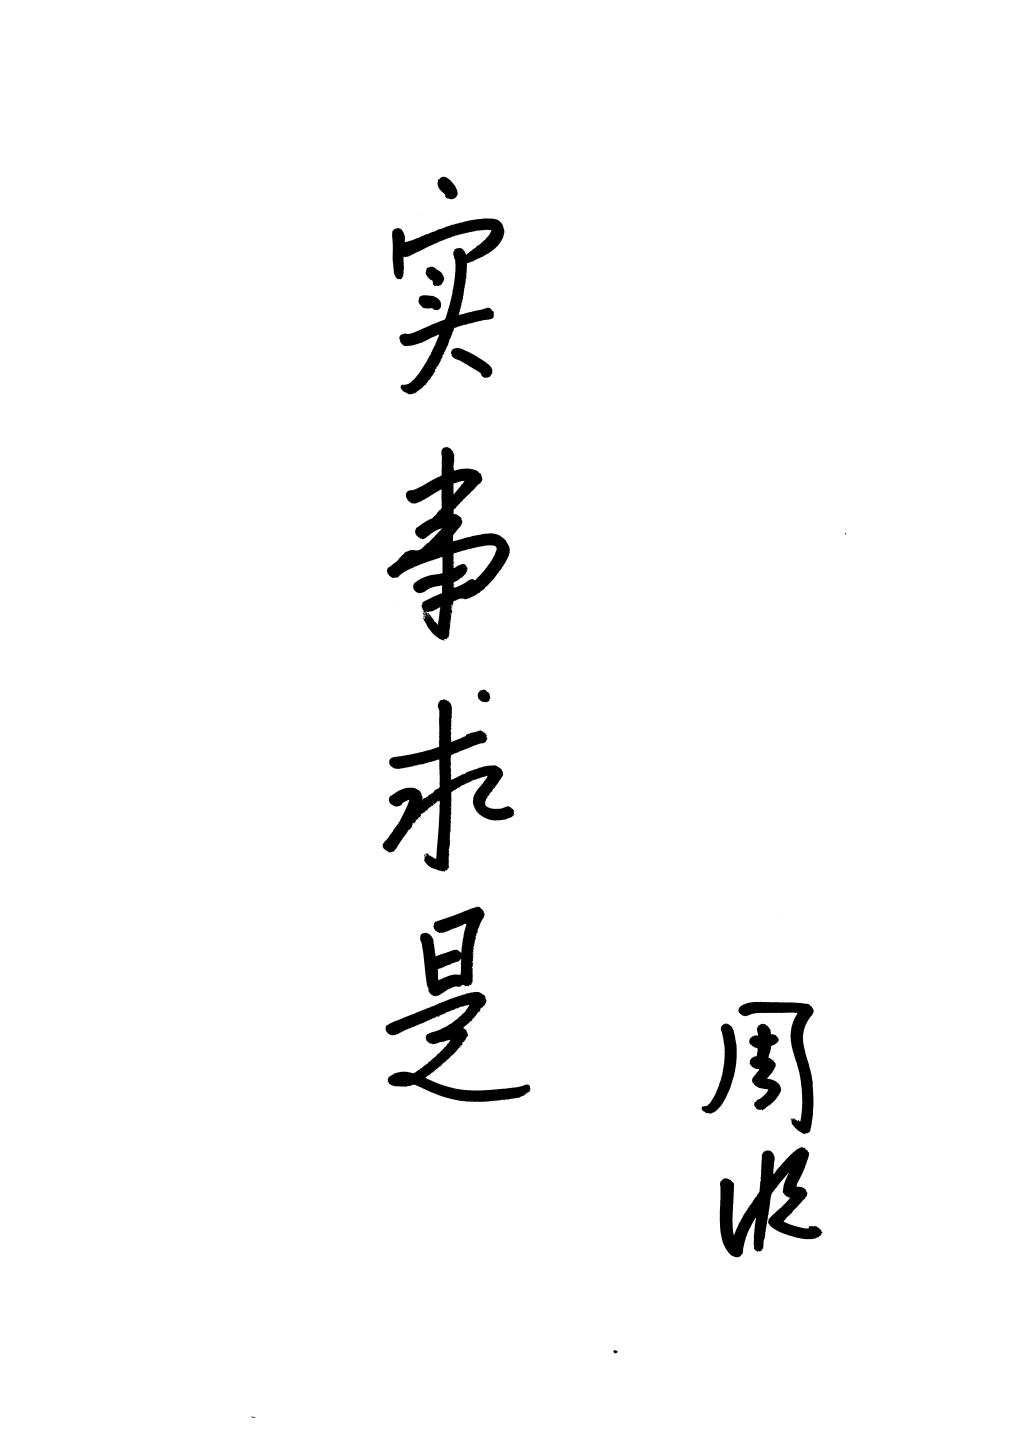 实事求是
周